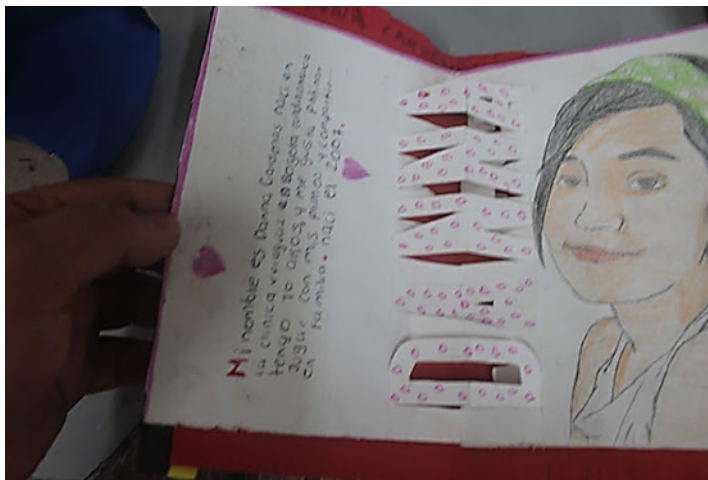 DANNA
Mi nombre es Danna Cardenas naci en
la clinica veraguas en Bogota cundinamarca
tengo 10 años y me gusta patinar
Jugar con mis primos y compartir
en familia. naci el 2007.
DANNA